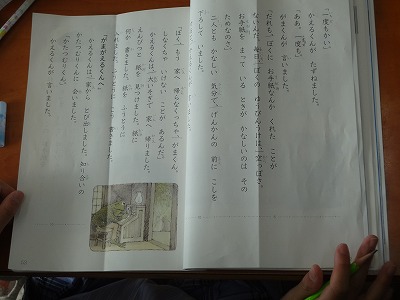 「一度もかい。」
かえるくんが たずねました。
「ああ。一度も。」
がまくんが 言いました。
「だれも、ぼくに お手紙なんか くれた ことが
ないんだ。毎日、ぼくの ゆうびんうけは、空っぽさ。
お手紙を まって いる ときが かなしいのは、その
ためなのさ。」
ふたりとも、かなしい 気分で、げんかんの 前に こしを
下ろして いました。
「ぼく、もう 家へ 帰らなくっちゃ、がまくん。
しなくちゃ いけない ことが、あるんだ。」
かえるくんは、大いそぎで 家へ 帰りました。
えんぴつと 紙を 見つけました。紙に
何か 書きました。紙を ふうとうに
こう 書きました。
「がまがえるくんへ」
かえるくんは、家から とび出しました。知り合いの
かたつむりくんに 会いました。
「かたつむりくん。」
かえるくんが 言いました。